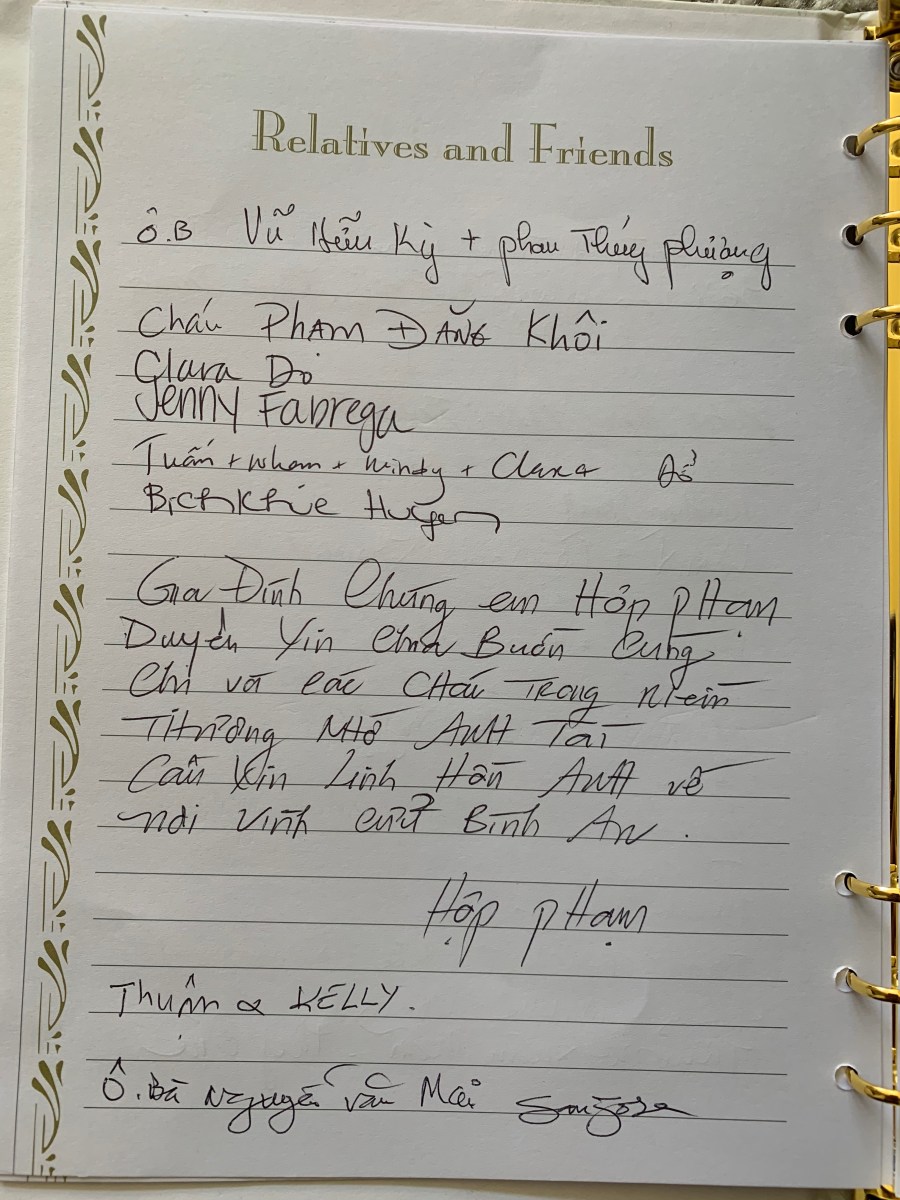 Relatives and Friends
Ô.B Vũ Hữu Kỳ + phan Thúy phượng
Cháu PHAM ĐĂNG Khôi
Clara Do
Jenny Fabrega
Tuấn + Nham + Windy + Clara Đỗ
Bichkhue
Gia Đình Chúng em Hóp PHạm
Duyên Xin Chia Buồn Cùng
Chị và các CHáu TRong niềm
THương NHớ ANH Tài
Cầu Xin Linh Hồn ANH về
nơi Vĩnh cửu Bình An.
Hộp PHạm
Thuận & KELLY.
Ô. Bà Nguyễn Văn Mai San Jose